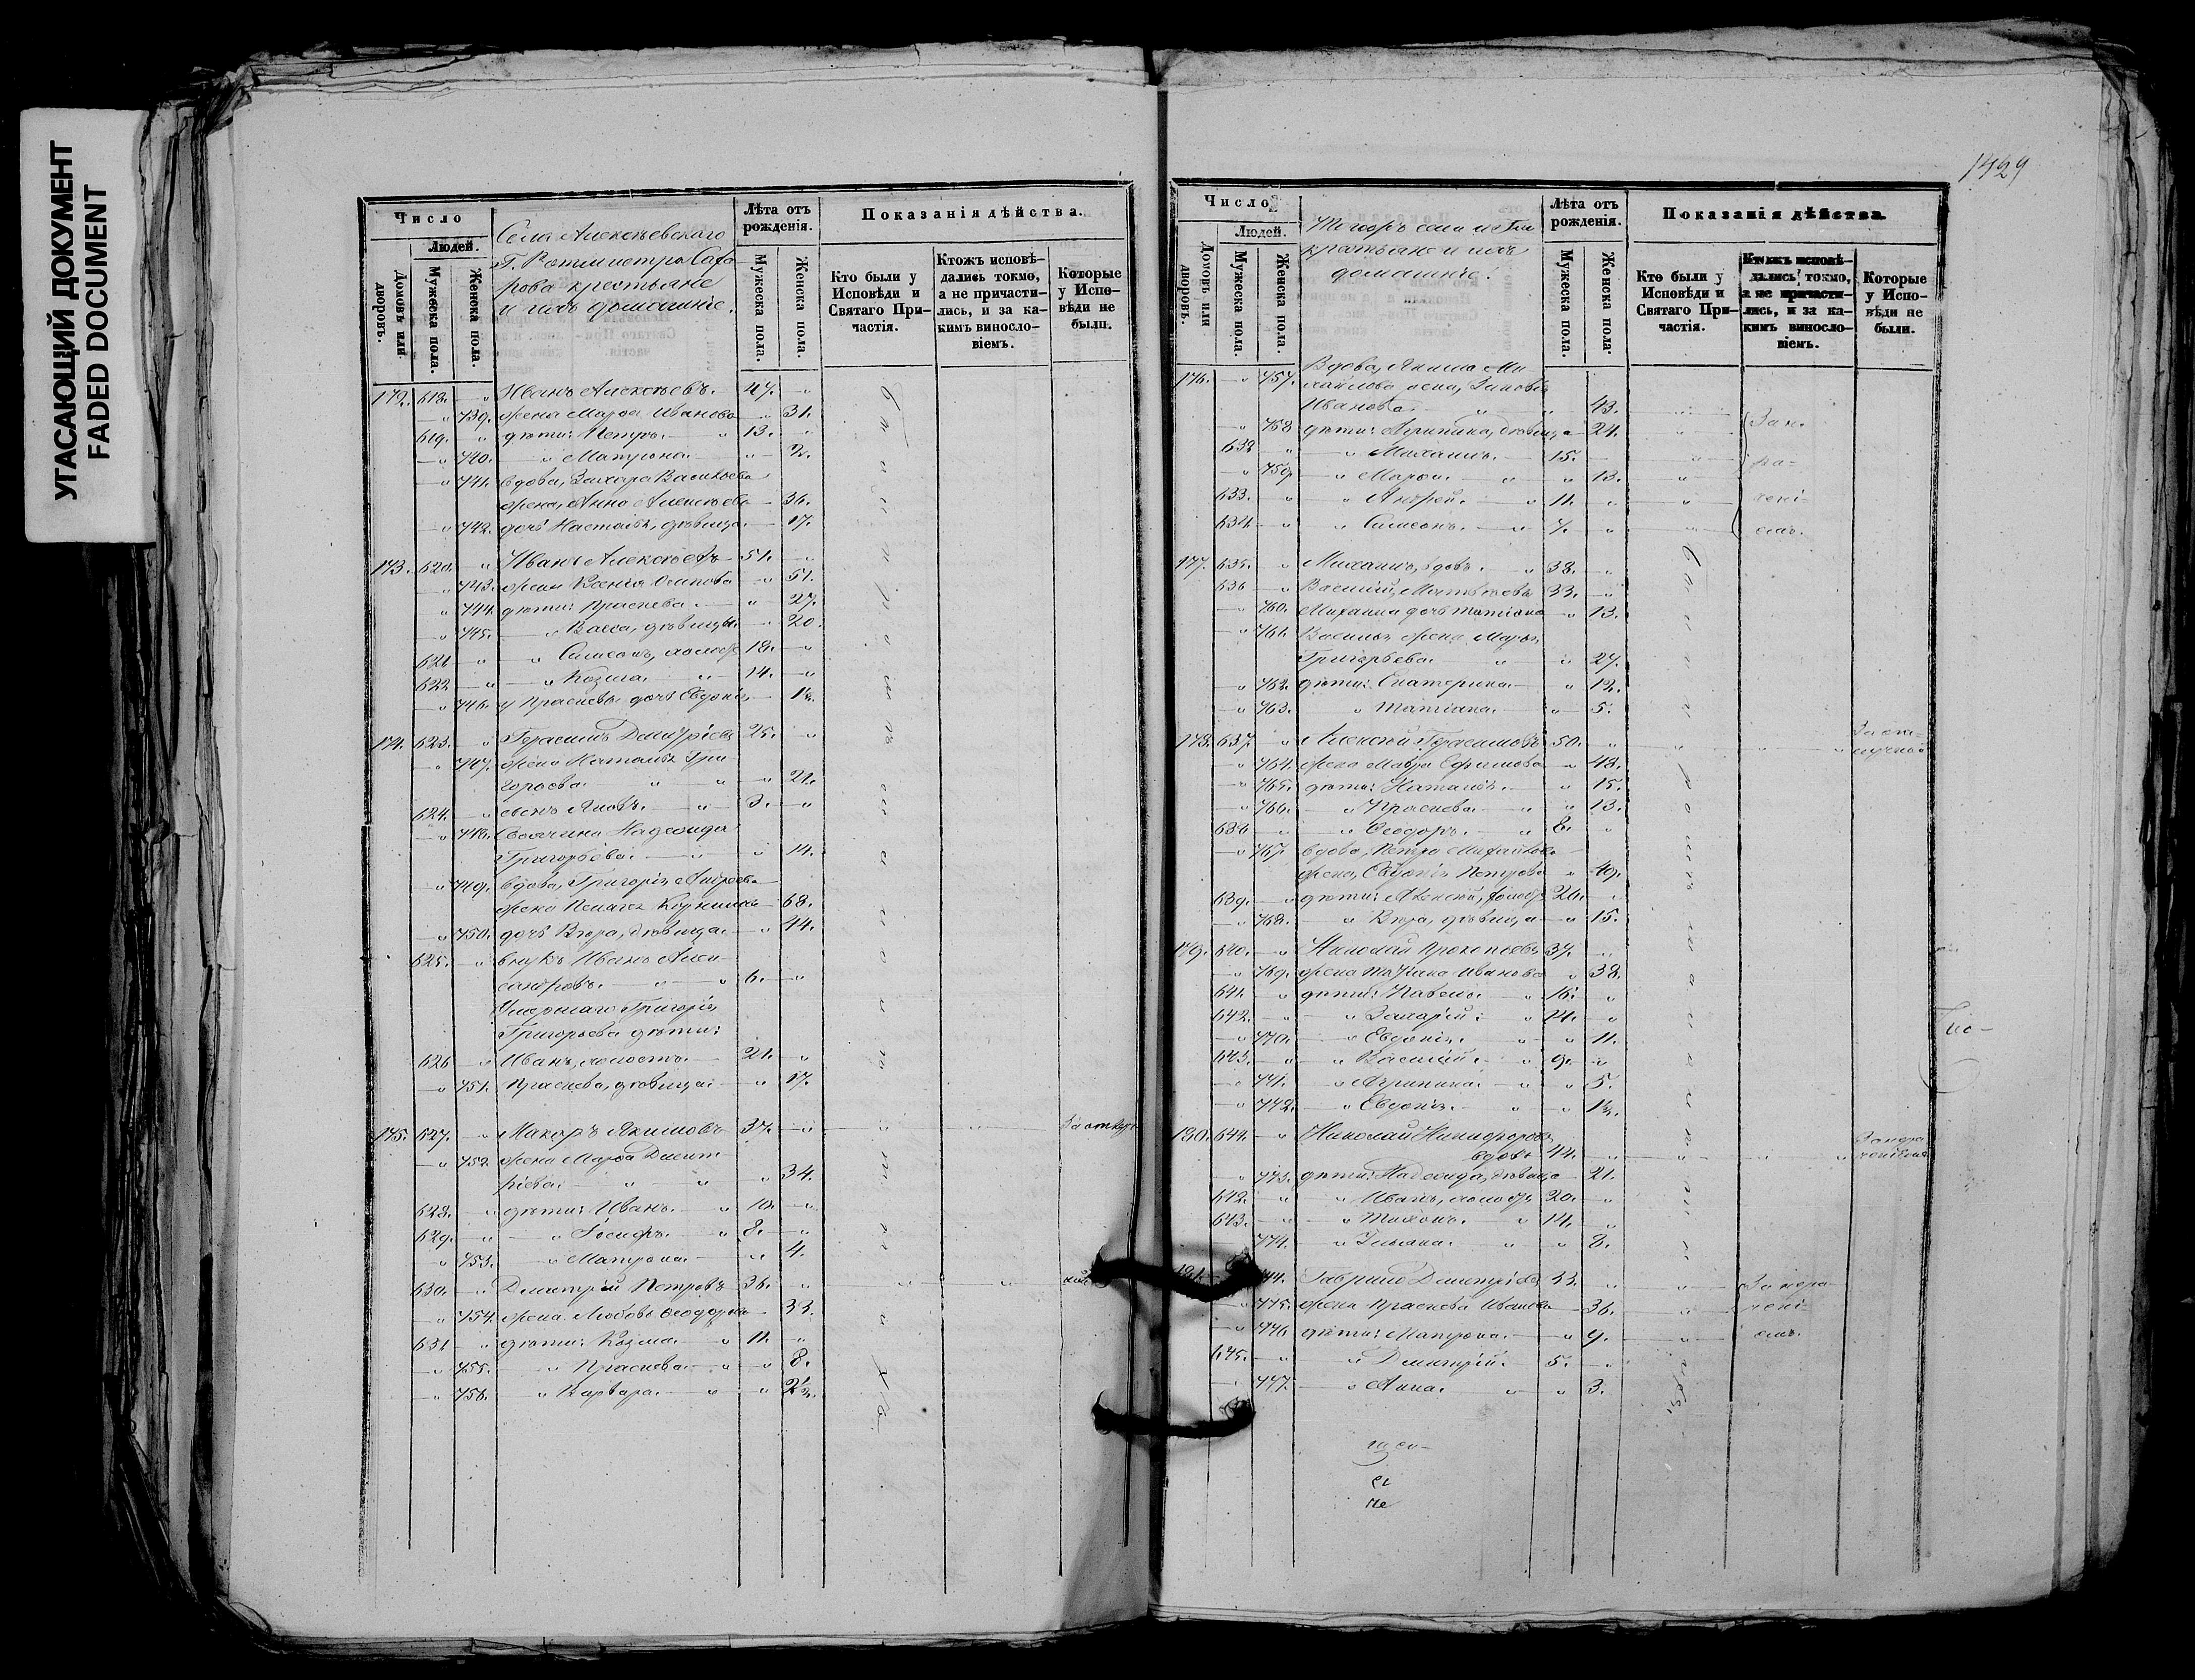 УГАСАЮЩИЙ ДОКУМЕНТ
FADED DOCUMENT
Число
Людей.
Домовъ или дворовъ.
Мужеска пола.
Женска пола.
Села Алексѣевскаго
Г. Ротмистра Сафо-
рова крестьяне
и ихъ домашніе.
Лѣта отъ рожденія.
Мужеска пола.
Женска пола.
Показанія дѣйства.
Кто были у Исповѣди и Святаго При-частія.
Ктожъ исповѣ-дались токмо, а не причасти-лись, и за ка-кимъ винослο-віемъ.
Которые у Испо-вѣди не были.
172. 618. " Иванъ Алексѣевъ. 47. "
" 739. жена Марѳа Иванова " 31.
619. " дѣти: Петръ. " 13. "
" 740. " Матрона. " 2.
" 741. вдова, Захара Васильева
жена, Анна Алексѣева 36.
" 742. дочь Настасья, дѣвица. 17.
173. 620. " Иванъ Алексѣевъ 51. "
" 743. жена Ксенія Осипова " 51.
" 744. дѣти: Праскева. " 27.
" 745. " Васса, дѣвицы. " 20.
621 " " Симеонъ, холостъ 18. "
622 " " Козма. " 14. "
" 746. у Праскевы дочь Евдокія 1½.
174. 623. " Герасимъ Дмитріевъ 25. "
" 747. жена Наталья Гри-
горьева. " " " 21.
624. " сынъ Яковъ. " 3. "
" 748. Своячина Надежда
Григорьева. " " 14.
" 749. вдова, Григорія Андреева
жена Пелагея Корнилова 68.
" 750. дочь Вѣра, дѣвица. " 44.
625. " внукъ Иванъ Алек-
сандровъ. " " 6. "
Умершаго Григорія
Григорьева дѣти:
626 " Иванъ, холостъ. 21. "
" 751. Праскева, дѣвица. " 17.
175. 627. " Макаръ Якимовъ 37. " " " За отлуч-
" 752. жена Марѳа Дмит-
ріева. " " " 34.
628. " дѣти: Иванъ. " 10. "
629. " " Іосифъ. " 8. "
" 753. " Матрона. " 4.
630. " Дмитрій Петровъ 36. " " "
" 754. жена Любовь Ѳеодорова 33.
631 " дѣти: Козма. " 11. "
" 755. " Праскева. " " 8.
" 756. " Варвара. " " 2½.
1429
Число
Людей.
Домовъ или дворовъ.
Мужеска пола.
Женска пола.
Тогожъ села и Г-на
крестьяне и ихъ
домашніе.
Лѣта отъ рожденія.
Мужеска пола.
Женска пола.
Показанія дѣйства.
Кто были у Исповѣди и Святаго При-частія.
Ктожъ исповѣ-дались токмо, а не причасти-лись, и за ка-кимъ винослο-віемъ.
Которые у Испо-вѣди не были.
176. " 757. Вдова, Якима Ми-
хайлова жена, Зиновія
Иванова. " " 43. "
" 758 дѣти: Агрипина, дѣвица 24. " Зан.
632 " " Михаилъ. 15. "
" 759. " Марѳа. " " 13. " ра-
633. " " Андрей. " 11. " " чені-
634. " " Симеонъ. " 7. " " емъ.
177. 635. " Михаилъ, вдовъ. " 38. "
636 " Василій, Матвѣевы 33. "
" 760. Михаила дочь Татіана " 13.
" 761. Василья жена Марья
Григорьева. " " 27.
" 762. дѣти: Екатерина. " 12.
" 763. " Татіана. " 5.
178. 637. " Алексѣй Герасимовъ 50. " " " " За от-
лучкой
" 764. жена Мавра Ефимова " 48.
" 765. дѣти: Наталья. " 15.
" 766. " Праскева. " " 13.
638 " " Ѳеодоръ. " 8. "
" 767. вдова, Петра Михайлова
жена, Евдокія Петрова " 49.
639. " дѣти: Алексѣй, холостъ 20. "
" 768. " Вѣра, дѣвица " 15.
179. 640. " Николай Прокопьевъ 37. "
" 769. жена Татіана Иванова " 38.
641. " дѣти: Павелъ. " 16. "
642. " " Захарій. " 14. "
" 770. " Евдокія. " " 11.
643. " " Василій. " 9. "
" 771. " Агрипина. " " 5.
" 772. " Евдокія. " " 1½.
180. 644. " Николай Никифоровъ
вдовъ 44. " " " "
" 773. дѣти: Надежда, дѣвица 21.
612. " " Иванъ, холостъ 20. "
613. " " Тихонъ. " 14. "
" 774. " Ульяна. " " 8.
181. 774. Гавріилъ Дмитріевъ 33. " " За нера-
" 775. жена Праскева Иванова 36. " чені-
" 776 дѣти: Матрона. " 9. " емъ.
645. " " Дмитрій. 5. "
" 777. " Анна. " " 3.